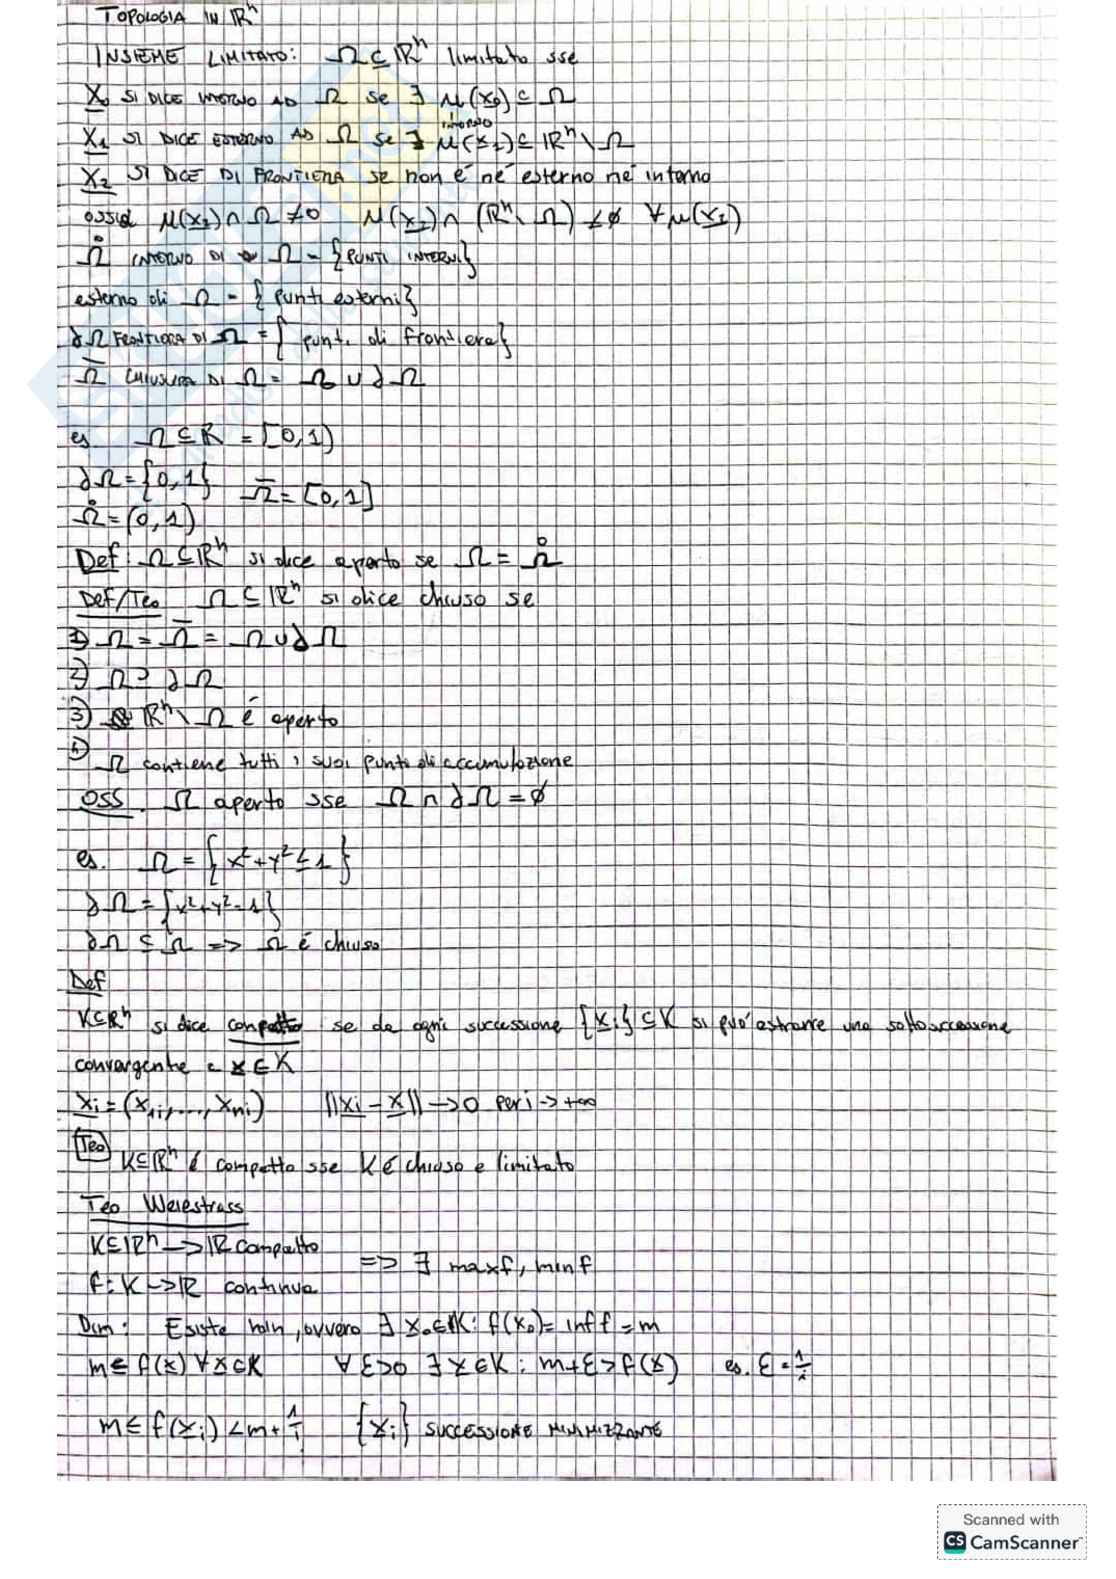 TOPOLOGIA IN ℝⁿ
INSIEME LIMITATO: Ω ⊆ ℝⁿ limitato sse
x₀ SI DICE INTERNO AD Ω se ∃ μ(x₀) ⊆ Ω
intorno
x₁ SI DICE ESTERNO AD Ω se ∃ μ(x₁) ⊆ ℝⁿ \ Ω
x₂ SI DICE DI FRONTIERA se non é né esterno né interno
ossia μ(x₂) ∩ Ω ≠ 0 μ(x₂) ∩ (ℝⁿ \ Ω) ≠ ∅ ∀ μ(x₂)
Ω̊ INTERNO DI Ω = {PUNTI INTERNI}
esterno di Ω = {punti esterni}
∂Ω FRONTIERA DI Ω = {punti di frontiera}
Ω̅ CHIUSURA DI Ω = Ω ∪ ∂Ω
es Ω ⊆ ℝ = [0,1)
∂Ω = {0,1} Ω̅ = [0,1]
Ω̊ = (0,1)
Def: Ω ⊆ ℝⁿ si dice aperto se Ω = Ω̊
Def/Teo Ω ⊆ ℝⁿ si dice chiuso se
1) Ω = Ω̅ = Ω ∪ ∂Ω
2) Ω ⊇ ∂Ω
3) ℝⁿ \ Ω é aperto
4) Ω contiene tutti i suoi punti di accumulazione
OSS. Ω aperto sse Ω ∩ ∂Ω = ∅
es. Ω = {x²+y² ≤ 1}
∂Ω = {x²+y²=1}
∂Ω ⊆ Ω => Ω é chiuso
Def
K⊆ℝⁿ si dice compatto se da ogni successione {xᵢ} ⊆ K si puó estrarre una sottosuccessione
convergente a x ∈ K
xᵢ = (x₁ᵢ, ..., xₙᵢ) ||xᵢ - x|| -> 0 per i -> +∞
Teo K⊆ℝⁿ é compatto sse K é chiuso e limitato
Teo Weiestrass
K⊆ℝⁿ -> ℝ compatto
=> ∃ max f, min f
f: K -> ℝ continua
Dim: Esiste min, ovvero ∃ x₀ ∈ K: f(x₀) = inf f = m
m ≤ f(x) ∀ x ∈ K ∀ ε>0 ∃ x ∈ K: m+ε > f(x) es. ε = 1/i
m ≤ f(xᵢ) < m + 1/i {xᵢ} SUCCESSIONE MINIMIZZANTE
Scanned with
CS CamScanner